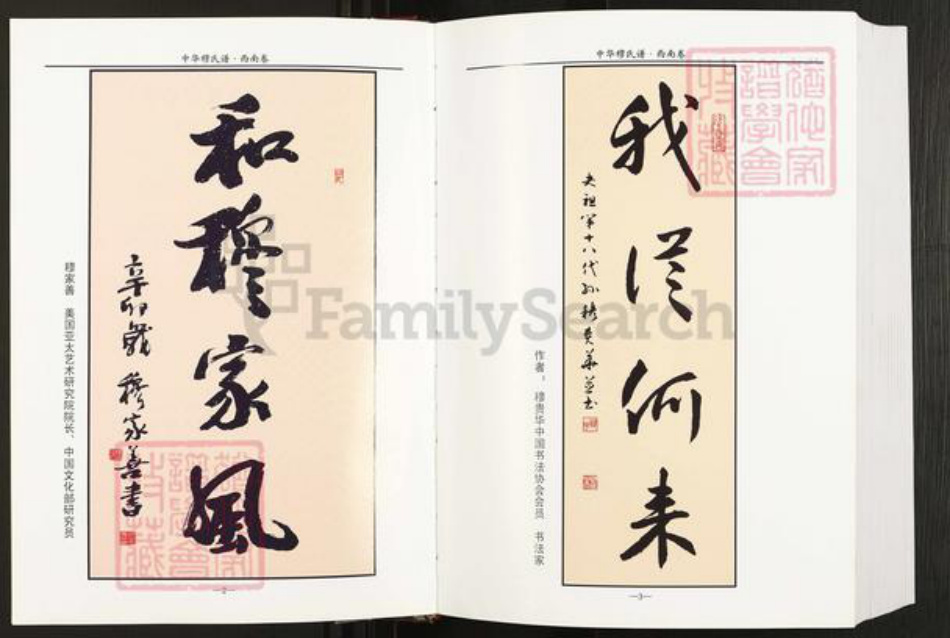 中华穆氏谱·西南卷
和穆家風
辛卯歲 穆家善書
穆家善 美国亚太艺术研究院院长、中国文化部研究员
—2—
中华穆氏谱·西南卷
我從何来
太祖第十八代孙穆贵华并书
作者：穆贵华中国书法协会会员 书法家
—3—
FamilySearch
譜學會
特藏